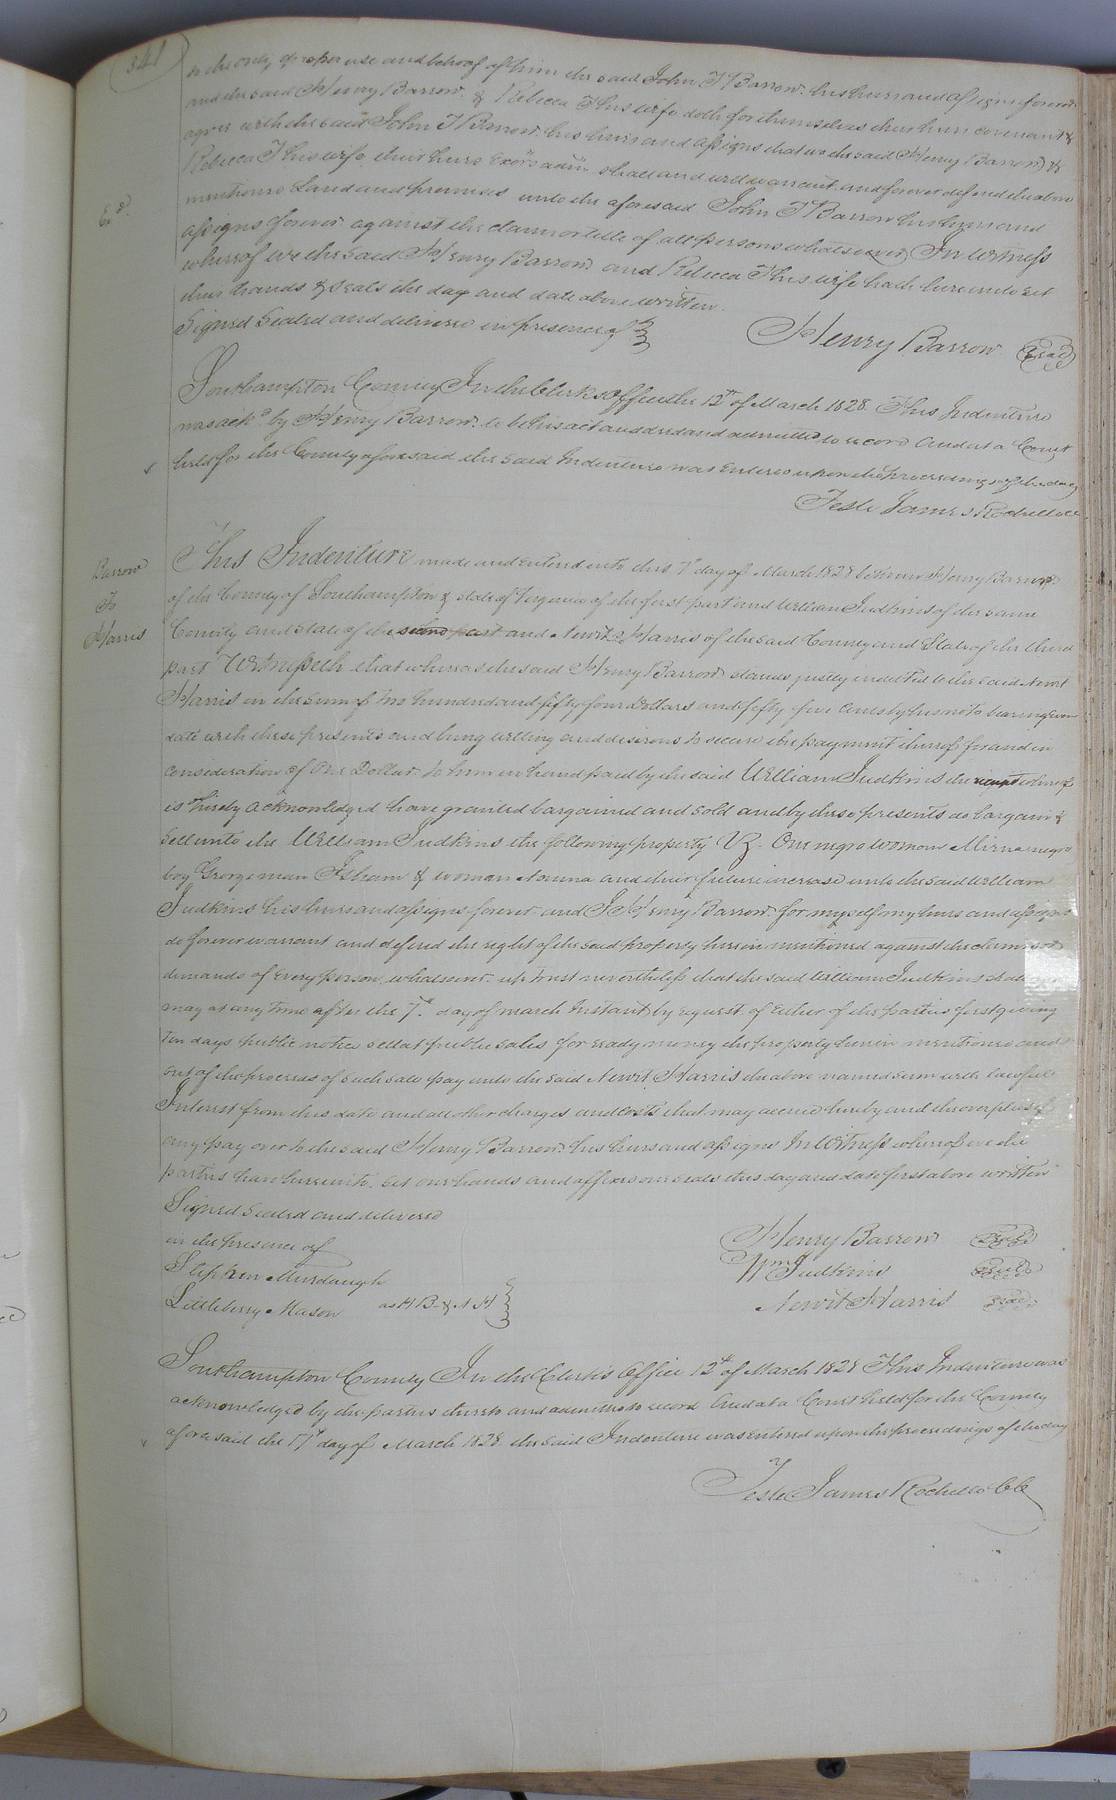 341
to the only proper use and behoof of him the said John T Barrow his heirs and assigns forever
and the said Henry Barrow & Rebecca T his wife doth for themselves their heirs covenant &
agree with the said John T Barrow his heirs and assigns that we the said Henry Barrow &
Rebecca T his wife their heirs Exors admrs shall and will warrant and forever defend the above
mentioned Land and premises unto the aforesaid John T Barrow his heirs and
Ex.d.
assigns forever against the claim or title of all persons whatsoever In Witness
whereof we the said Henry Barrow and Rebecca T his wife hath hereunto set
their hands & seals the day and date above written.
Signed Sealed and delivered in presence of
Henry Barrow Seal
Southampton County In the Clerks Office the 12th of March 1828. This Indenture
was ackd by Henry Barrow to be his act and deed and admitted to record And at a Court
held for the County aforesaid the said Indenture was Entered upon the proceedings of the day
Teste James Rochelle CC
Barrow
To
Harris
This Indenture made and entered into this 7th day of March 1828 between Henry Barrow
of the County of Southampton & state of Virginia of the first part and William Judkins of the same
County and State of the second part and Newit Harris of the said County and State of the third
part Witnesseth that whereas the said Henry Barrow stands justly indebted to the said Newit
Harris in the sum of two hundred and fifty four Dollars and fifty five Cents by his note bearing even
date with these presents and being willing and desirous to secure the payment thereof for and in
consideration of One Dollar to him in hand paid by the said William Judkins the receipt whereof
is hereby acknowledged have granted bargained and sold and by these presents do bargain &
Sell unto the William Judkins the following property Vz. One negro woman Mirna negro
boy George man Isham & woman and their future increase unto the said William
Judkins his heirs and assigns forever and I Henry Barrow for myself my heirs and assigns
do forever warrant and defend the right of the said property herein mentioned against the claims or
demands of every person whatsoever up trust nevertheless that the said William Judkins shall
may at any time after the 7th day of march Instant by request of Either of the parties first giving
Ten days public notice sell at public sales for ready money the property herein mentioned and
out of the proceeds of such sale pay unto the said Newit Harris the above named sum with lawful
Interest from this date and all other charges and costs that may accrue hereby and the overplus if
any pay over to the said Henry Barrow his heirs and assigns In Witness whereof we the
parties have hereunto set our hands and affixed our seals this day and date first above written
Signed Sealed and delivered
in the presence of
Stephen Murdaugh
Littleberry Mason as H B & N H
Henry Barrow Seal
Wm Judkins Seal
Newit Harris Seal
Southampton County In the Clerk's Office 12th of March 1828 This Indenture was
acknowledged by the parties thereto and admitted to record And at a Court held for the County
aforesaid the 17th day of March 1828 the said Indenture was entered upon the proceedings of the day
Teste James Rochelle CC